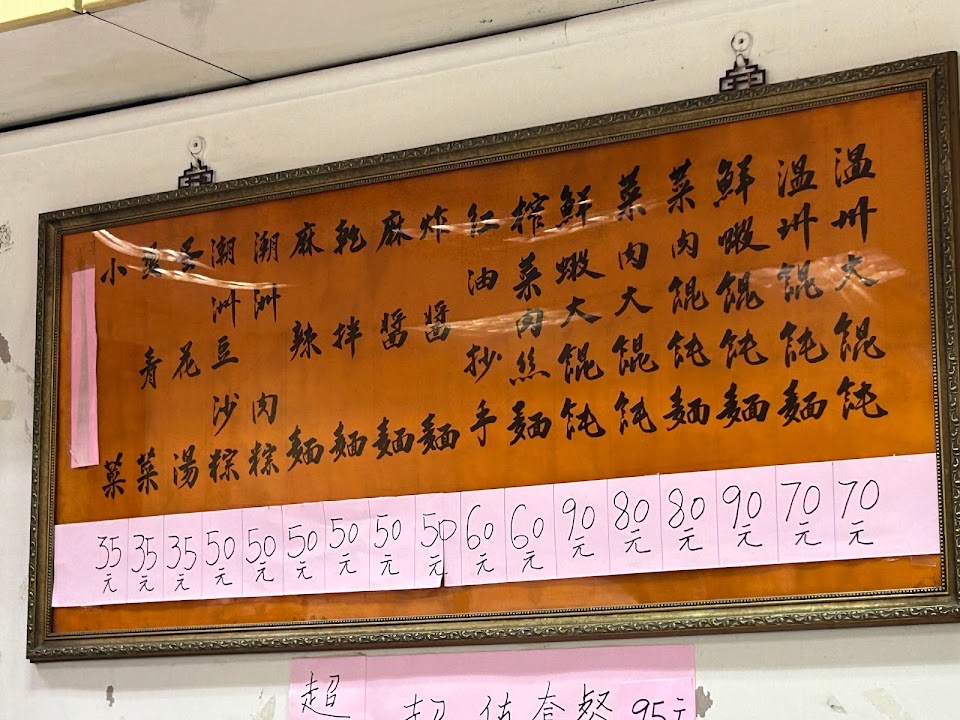 溫州大餛飩 70元
溫州餛飩麵 70元
鮮蝦餛飩麵 90元
菜肉餛飩麵 80元
菜肉大餛飩 80元
鮮蝦大餛飩 90元
榨菜肉絲麵 60元
紅油抄手 60元
炸醬麵 50元
麻醬麵 50元
乾拌麵 50元
麻辣麵 50元
潮州肉粽 50元
潮州豆沙粽 50元
蛋花湯 35元
青菜 35元
小菜 35元
超
超值套餐 95元